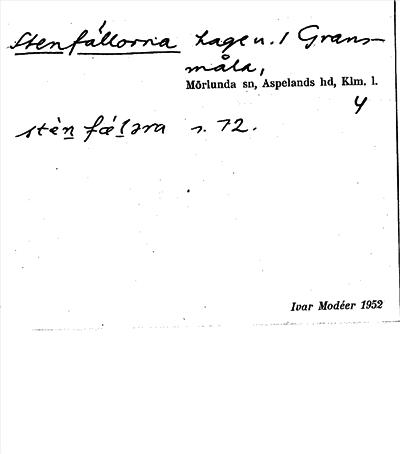 Stenfällorna hage u. / Grans-
måla,
Mörlunda sn, Aspelands hd, Klm. l.
4
stèn fǽlǝra s. 72.
Ivar Modéer 1952